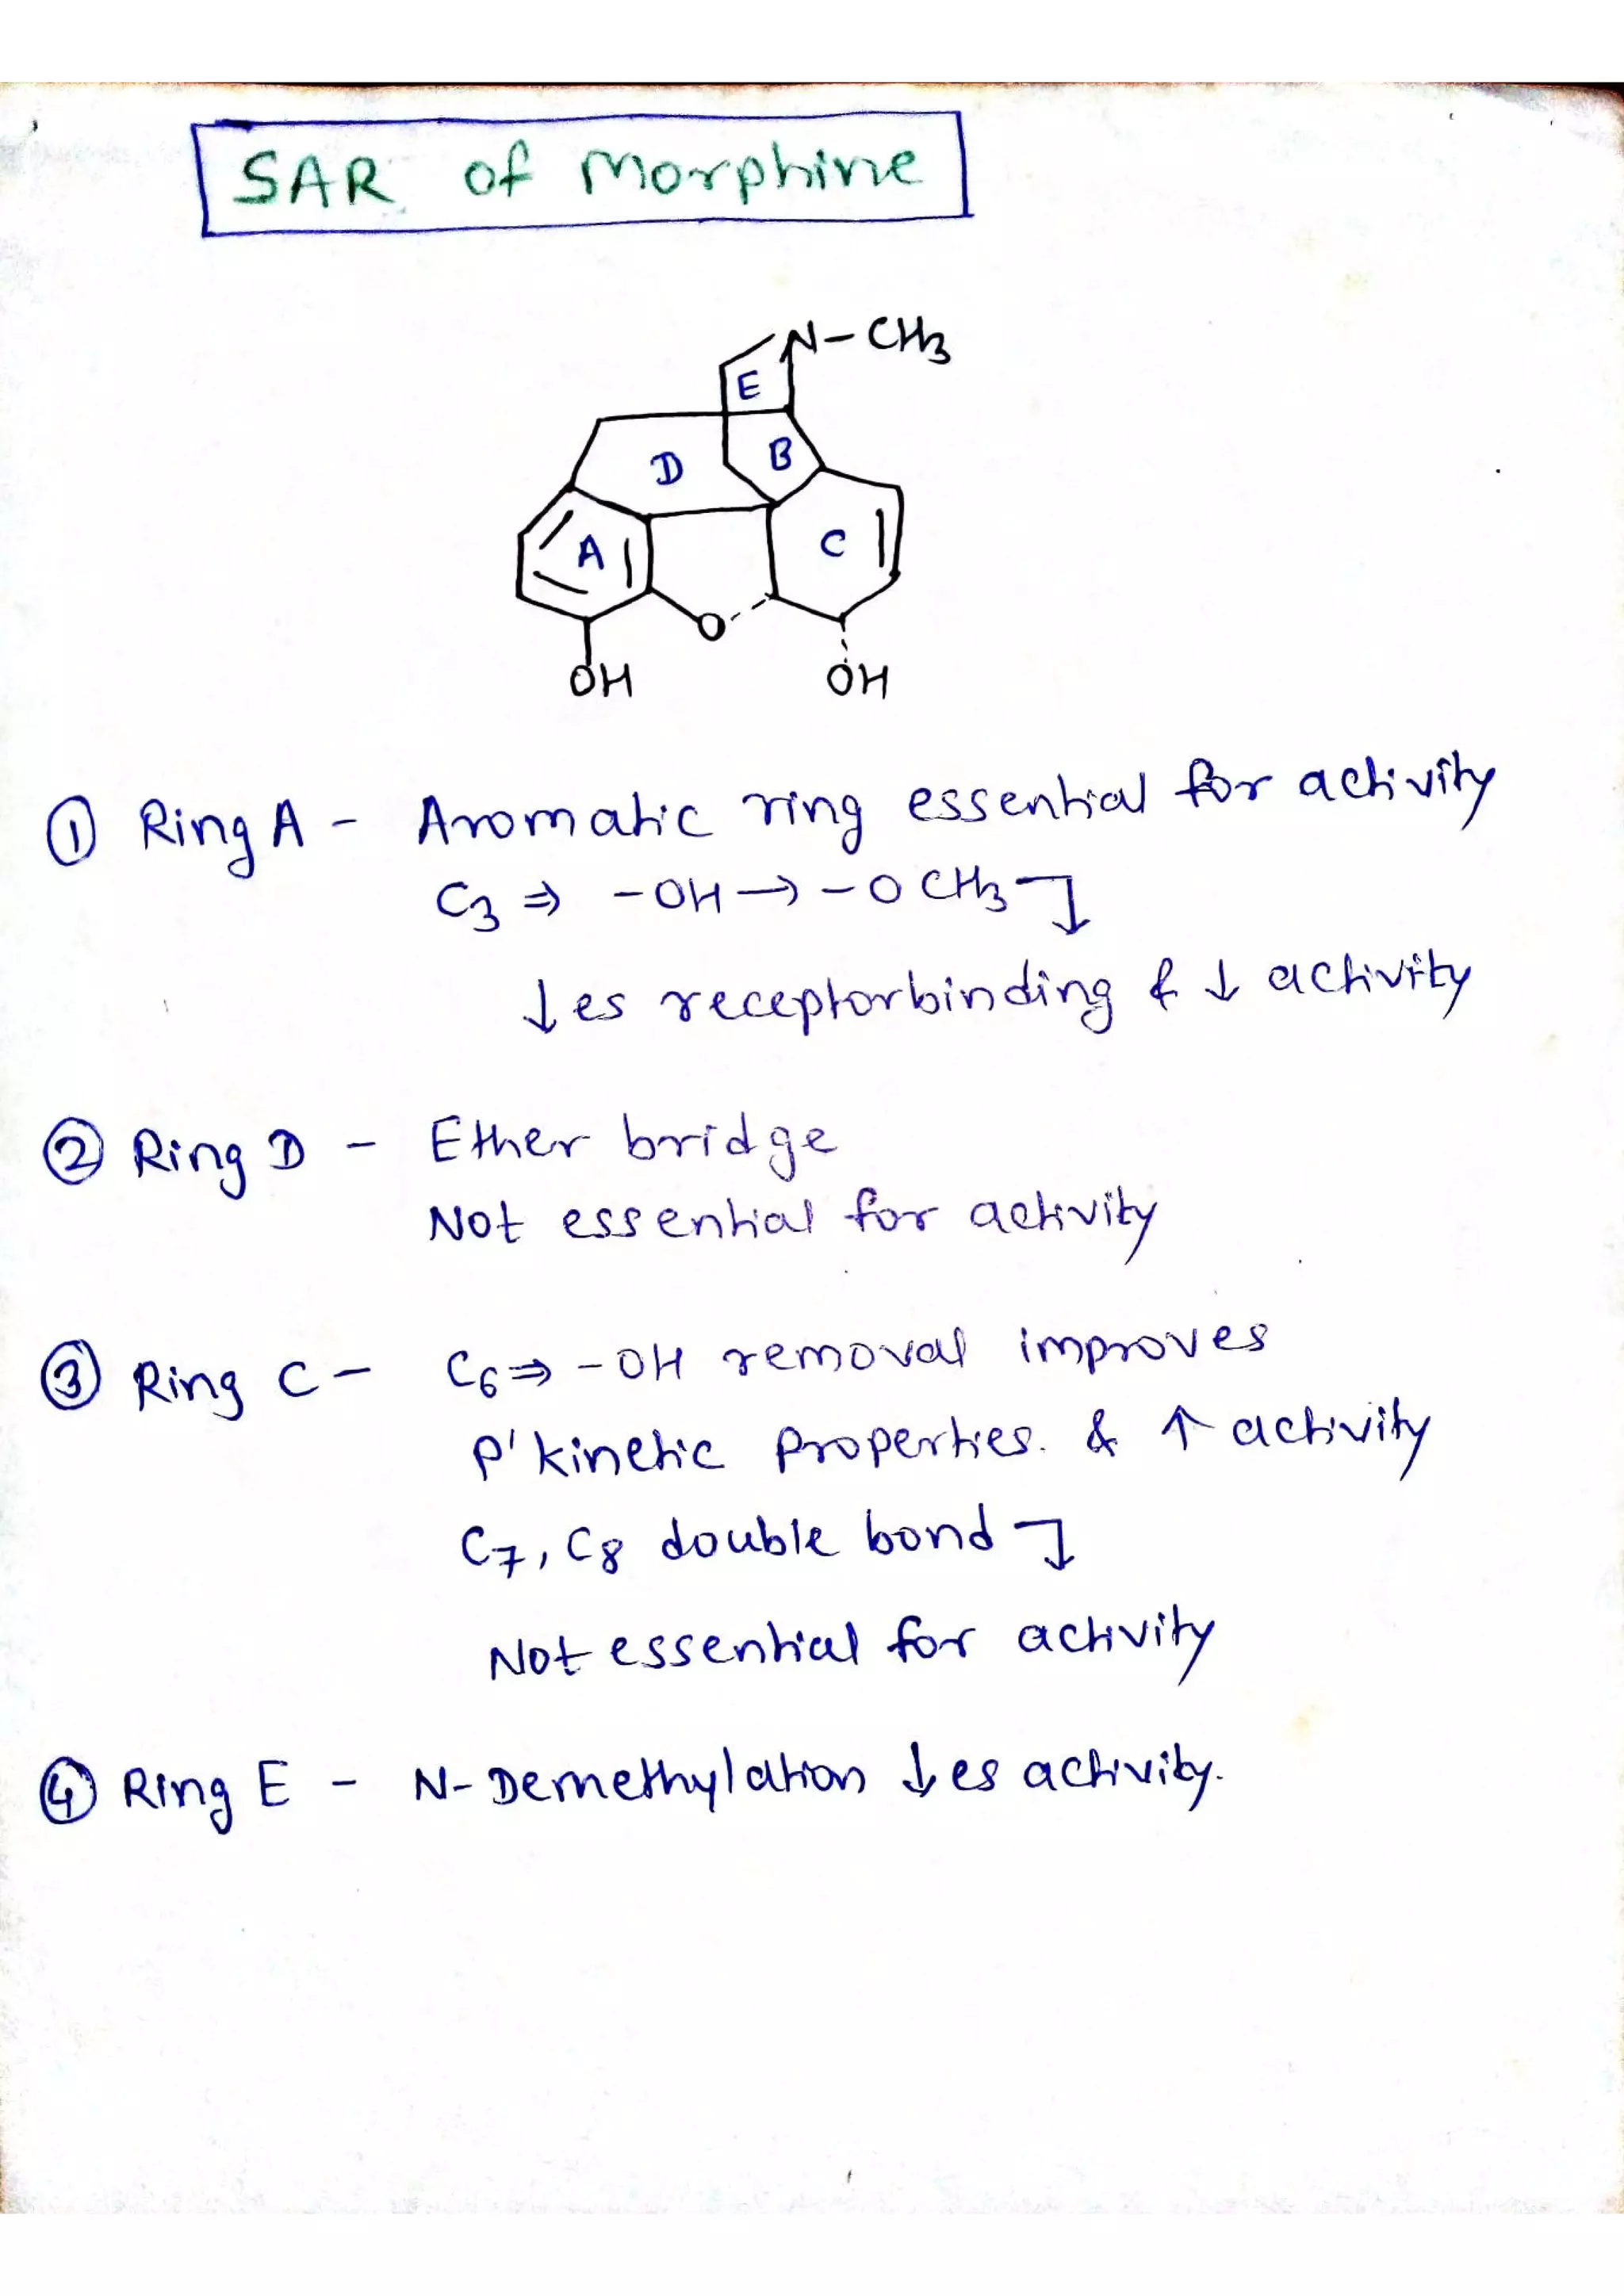 SAR of Morphine
N-CH3
E
D
B
A
C
O
OH
OH
① Ring A - Aromatic ring essential for activity
C3 ⇒ -OH → -OCH3 ↓
↓es receptorbinding & ↓ activity
② Ring D - Ether bridge
Not essential for activity
③ Ring C - C6 ⇒ -OH removal improves
P'kinetic Properties. & ↑ activity
C7, C8 double bond ↓
Not essential for activity
④ Ring E - N-Demethylation ↓es activity.